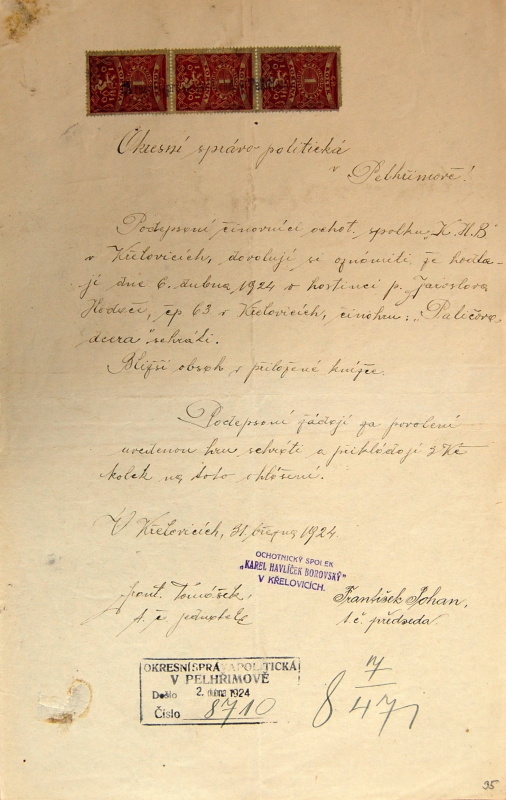 Okresní správo politická
v Pelhřimově!
Podepsaní činovníci ochot. spolku „K.H.B"
v Křelovicích, dovolují si oznámiti, že hodla-
jí dne 6. dubna 1924 v hostinci p. Jaroslava
čp 63 v Křelovicích, činohru: „Paličova
dcera" sehráti.
Bližší obsah v přiložené knížce.
Podepsaní žádají za povolení
uvedenou hru sehráti a přikládají 3 Kč
kolek na toto ohlášení.
V Křelovicích, 31. března 1924.
OCHOTNICKÝ SPOLEK
„KAREL HAVLÍČEK BOROVSKÝ"
V KŘELOVICÍCH.
Frant. Tomášek,
t. č. jednatel
František Johan,
t. č. předseda
OKRESNÍ SPRÁVA POLITICKÁ
V PELHŘIMOVĚ
Došlo 2. dubna 1924
Číslo 8710
8 7/47
95